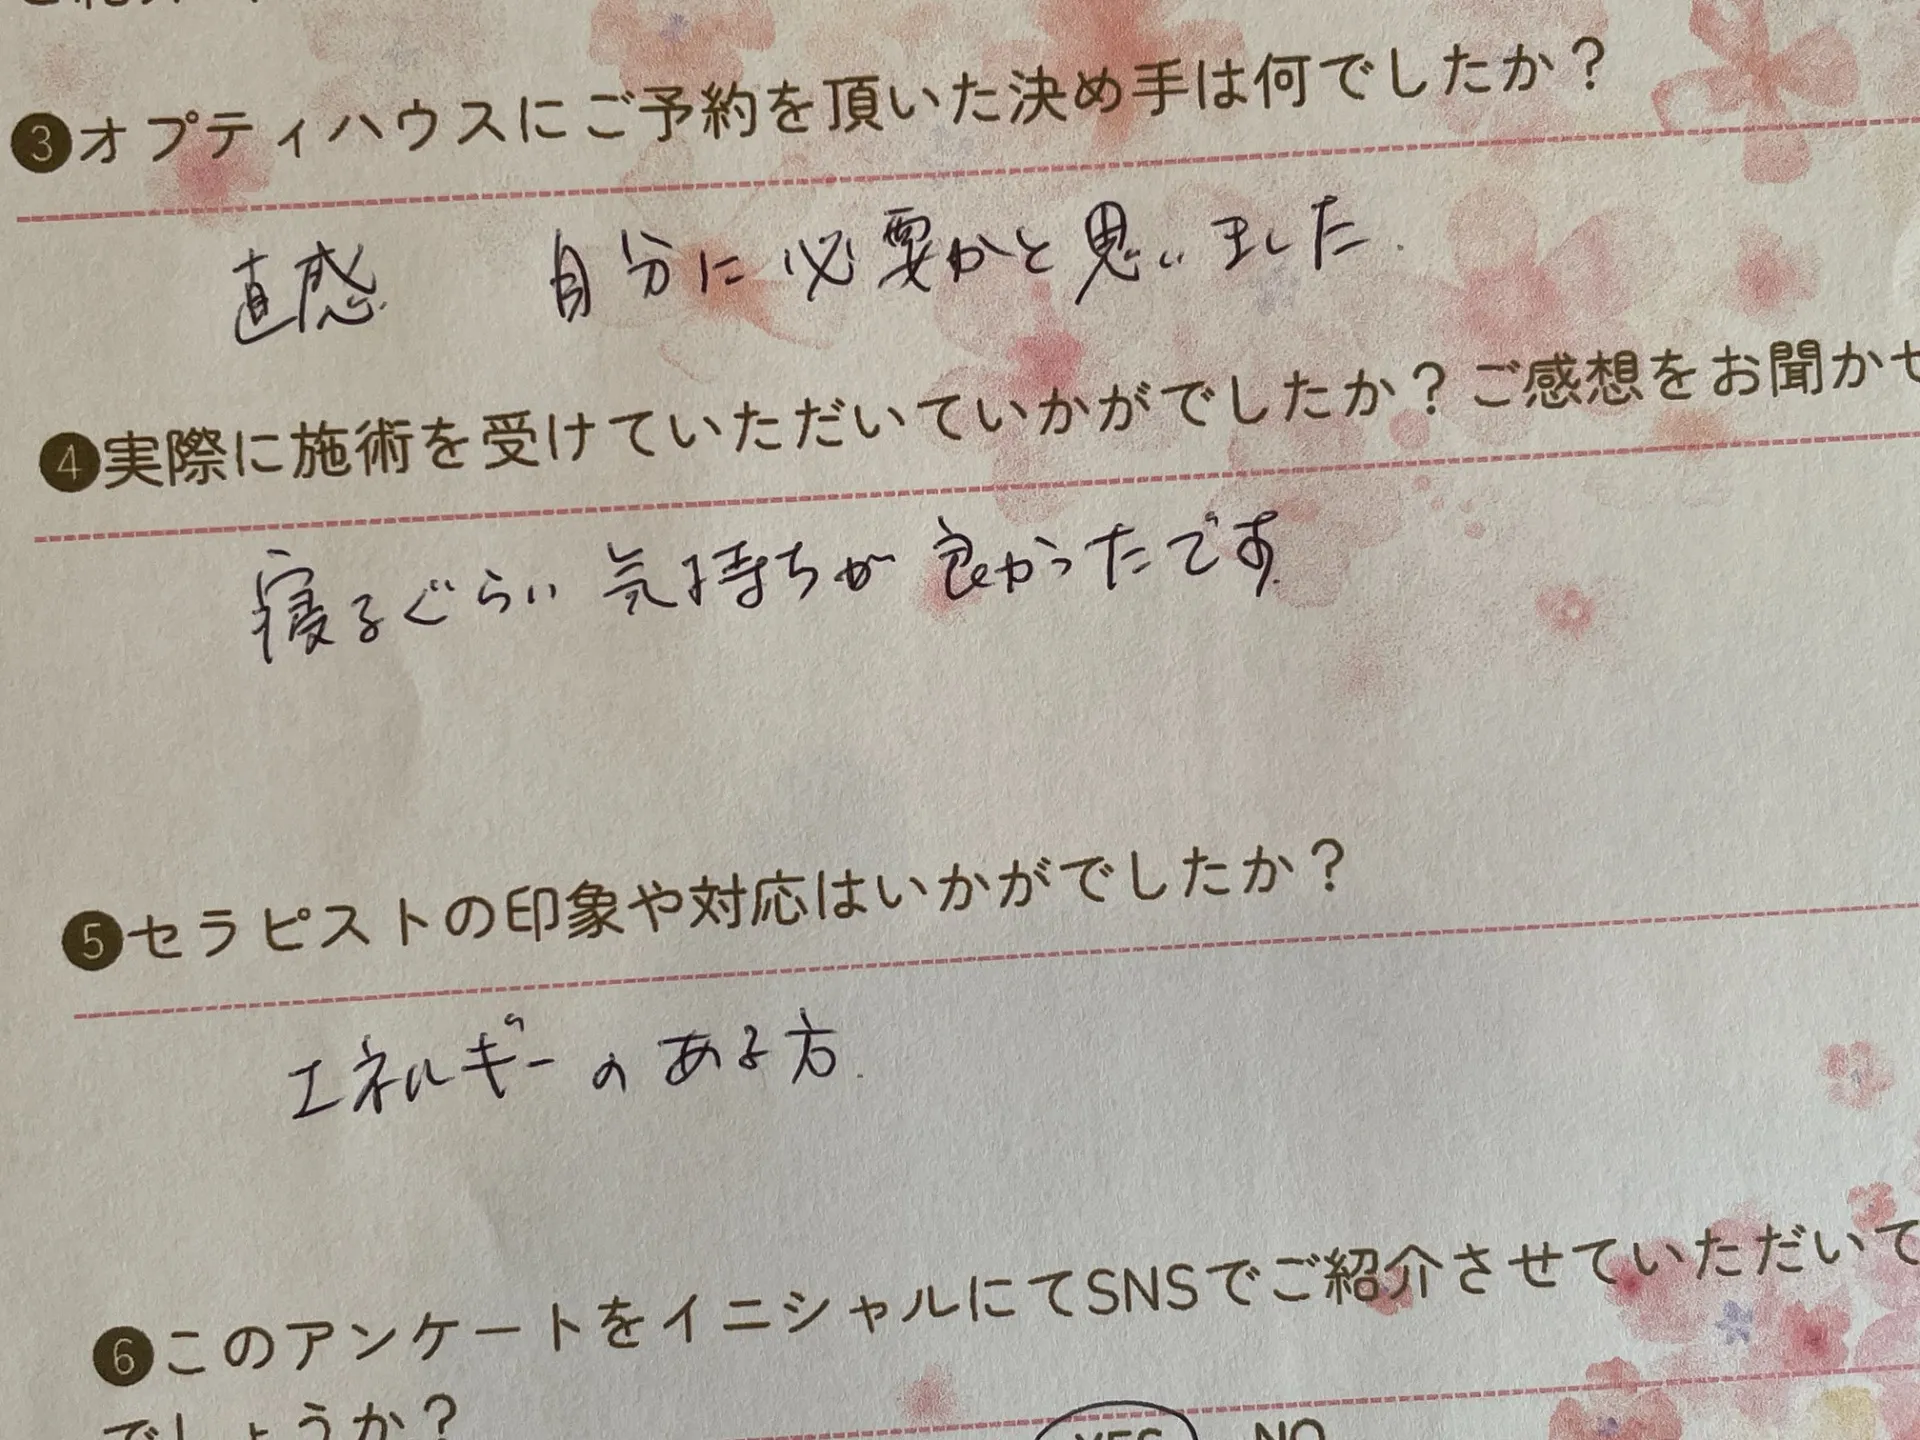 ❸オプティハウスにご予約を頂いた決め手は何でしたか？
直感 自分に必要かと思いました.
❹実際に施術を受けていただいていかがでしたか？ご感想をお聞かせ
寝るぐらい気持ちが良かったです.
❺セラピストの印象や対応はいかがでしたか？
エネルギーのある方.
❻このアンケートをイニシャルにてSNSでご紹介させていただいて
でしょうか？
YES NO